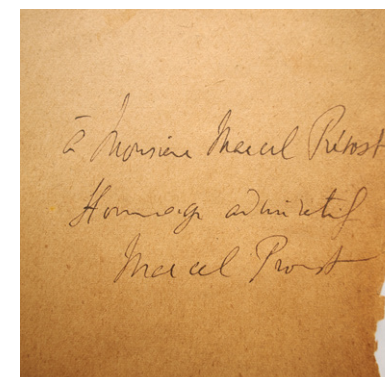 à Monsieur Marcel Prévost
Hommage admiratif
Marcel Proust